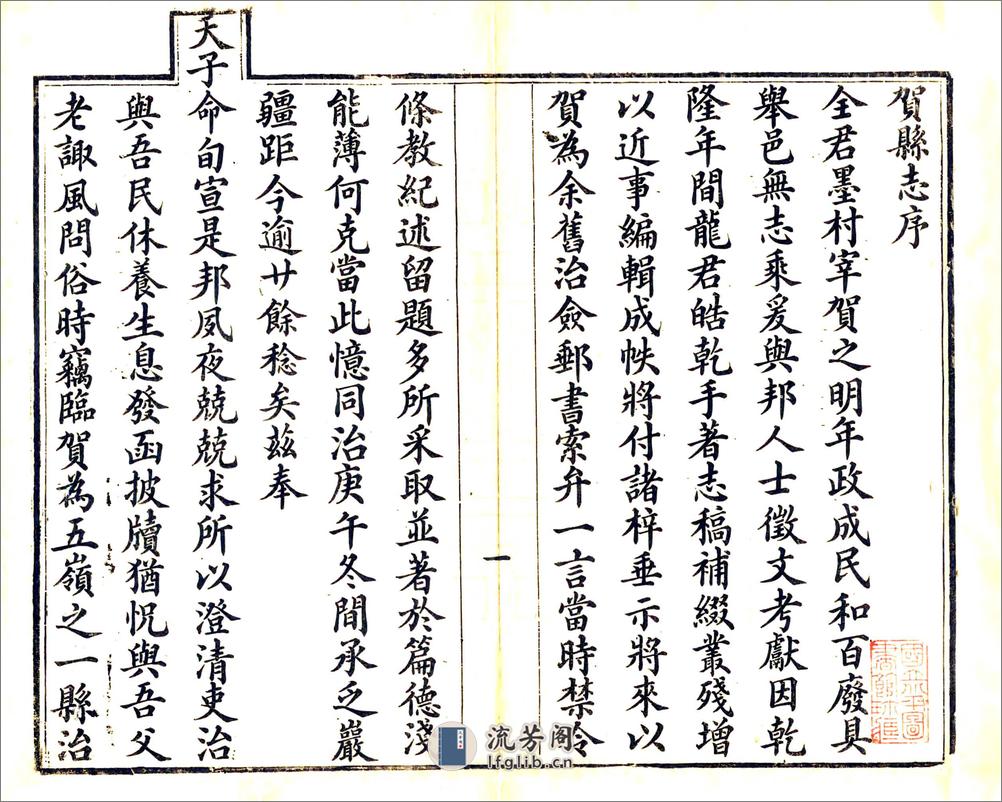 賀縣志序
全君墨村宰賀之明年政成民和百廢具
舉邑無志乘爰與邦人士徵文考獻因乾
隆年間龍君皓乾手著志稿補綴叢殘增
以近事編輯成帙將付諸梓垂示將來以
賀為余舊治僉郵書索弁一言當時禁令
一
條教紀述留題多所采取並著於篇德淺
能薄何克當此憶同治庚午冬間承乏巖
疆距今逾廿餘稔矣茲奉
天子命旬宣是邦夙夜兢兢求所以澄清吏治
與吾民休養生息發函披牘猶怳與吾父
老諏風問俗時竊臨賀為五嶺之一縣治
流芳阁
lfglib.cn